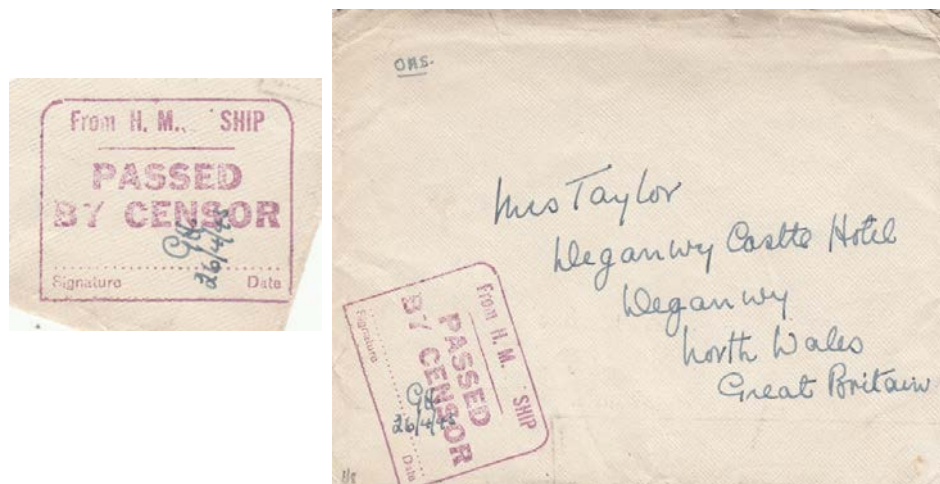 From H. M. SHIP
PASSED
BY CENSOR
26/4/45
Signature Date
OAS.
Mrs Taylor
Deganwy Castle Hotel
Deganwy
North Wales
Great Britain
From H. M. SHIP
PASSED
BY CENSOR
26/4/45
Signature Date